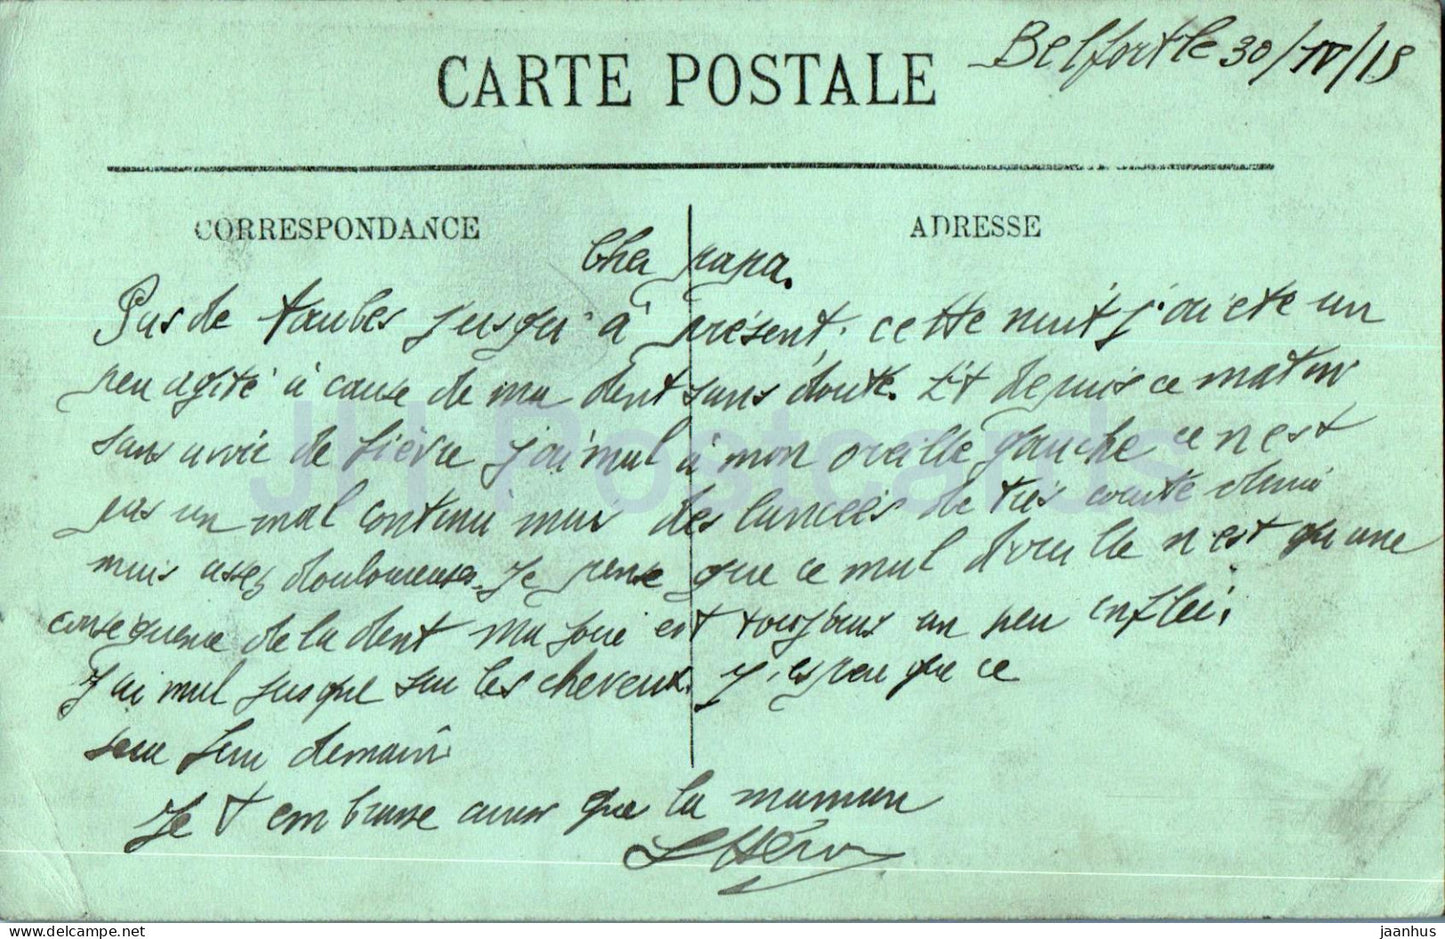 CARTE POSTALE
Belfort le 30/IV/15
CORRESPONDANCE
ADRESSE
Cher papa.
Pas de taubes jusqu'à présent. cette nuit j'ai été un
peu agité à cause de ma dent sans doute. Et depuis ce matin
sans avoir de fièvre j'ai mal à mon oreille gauche ce n'est
pas un mal continu mais des lancées de très courte durée
mais assez douloureuses. Je pense que ce mal d'oreille n'est qu'une
conséquence de la dent ma joue est toujours un peu enflée.
J'ai mal jusque sur les cheveux. J'espère que ce
sera fini demain
Je t'embrasse ainsi que la maman
JH Postcards
jaanhus